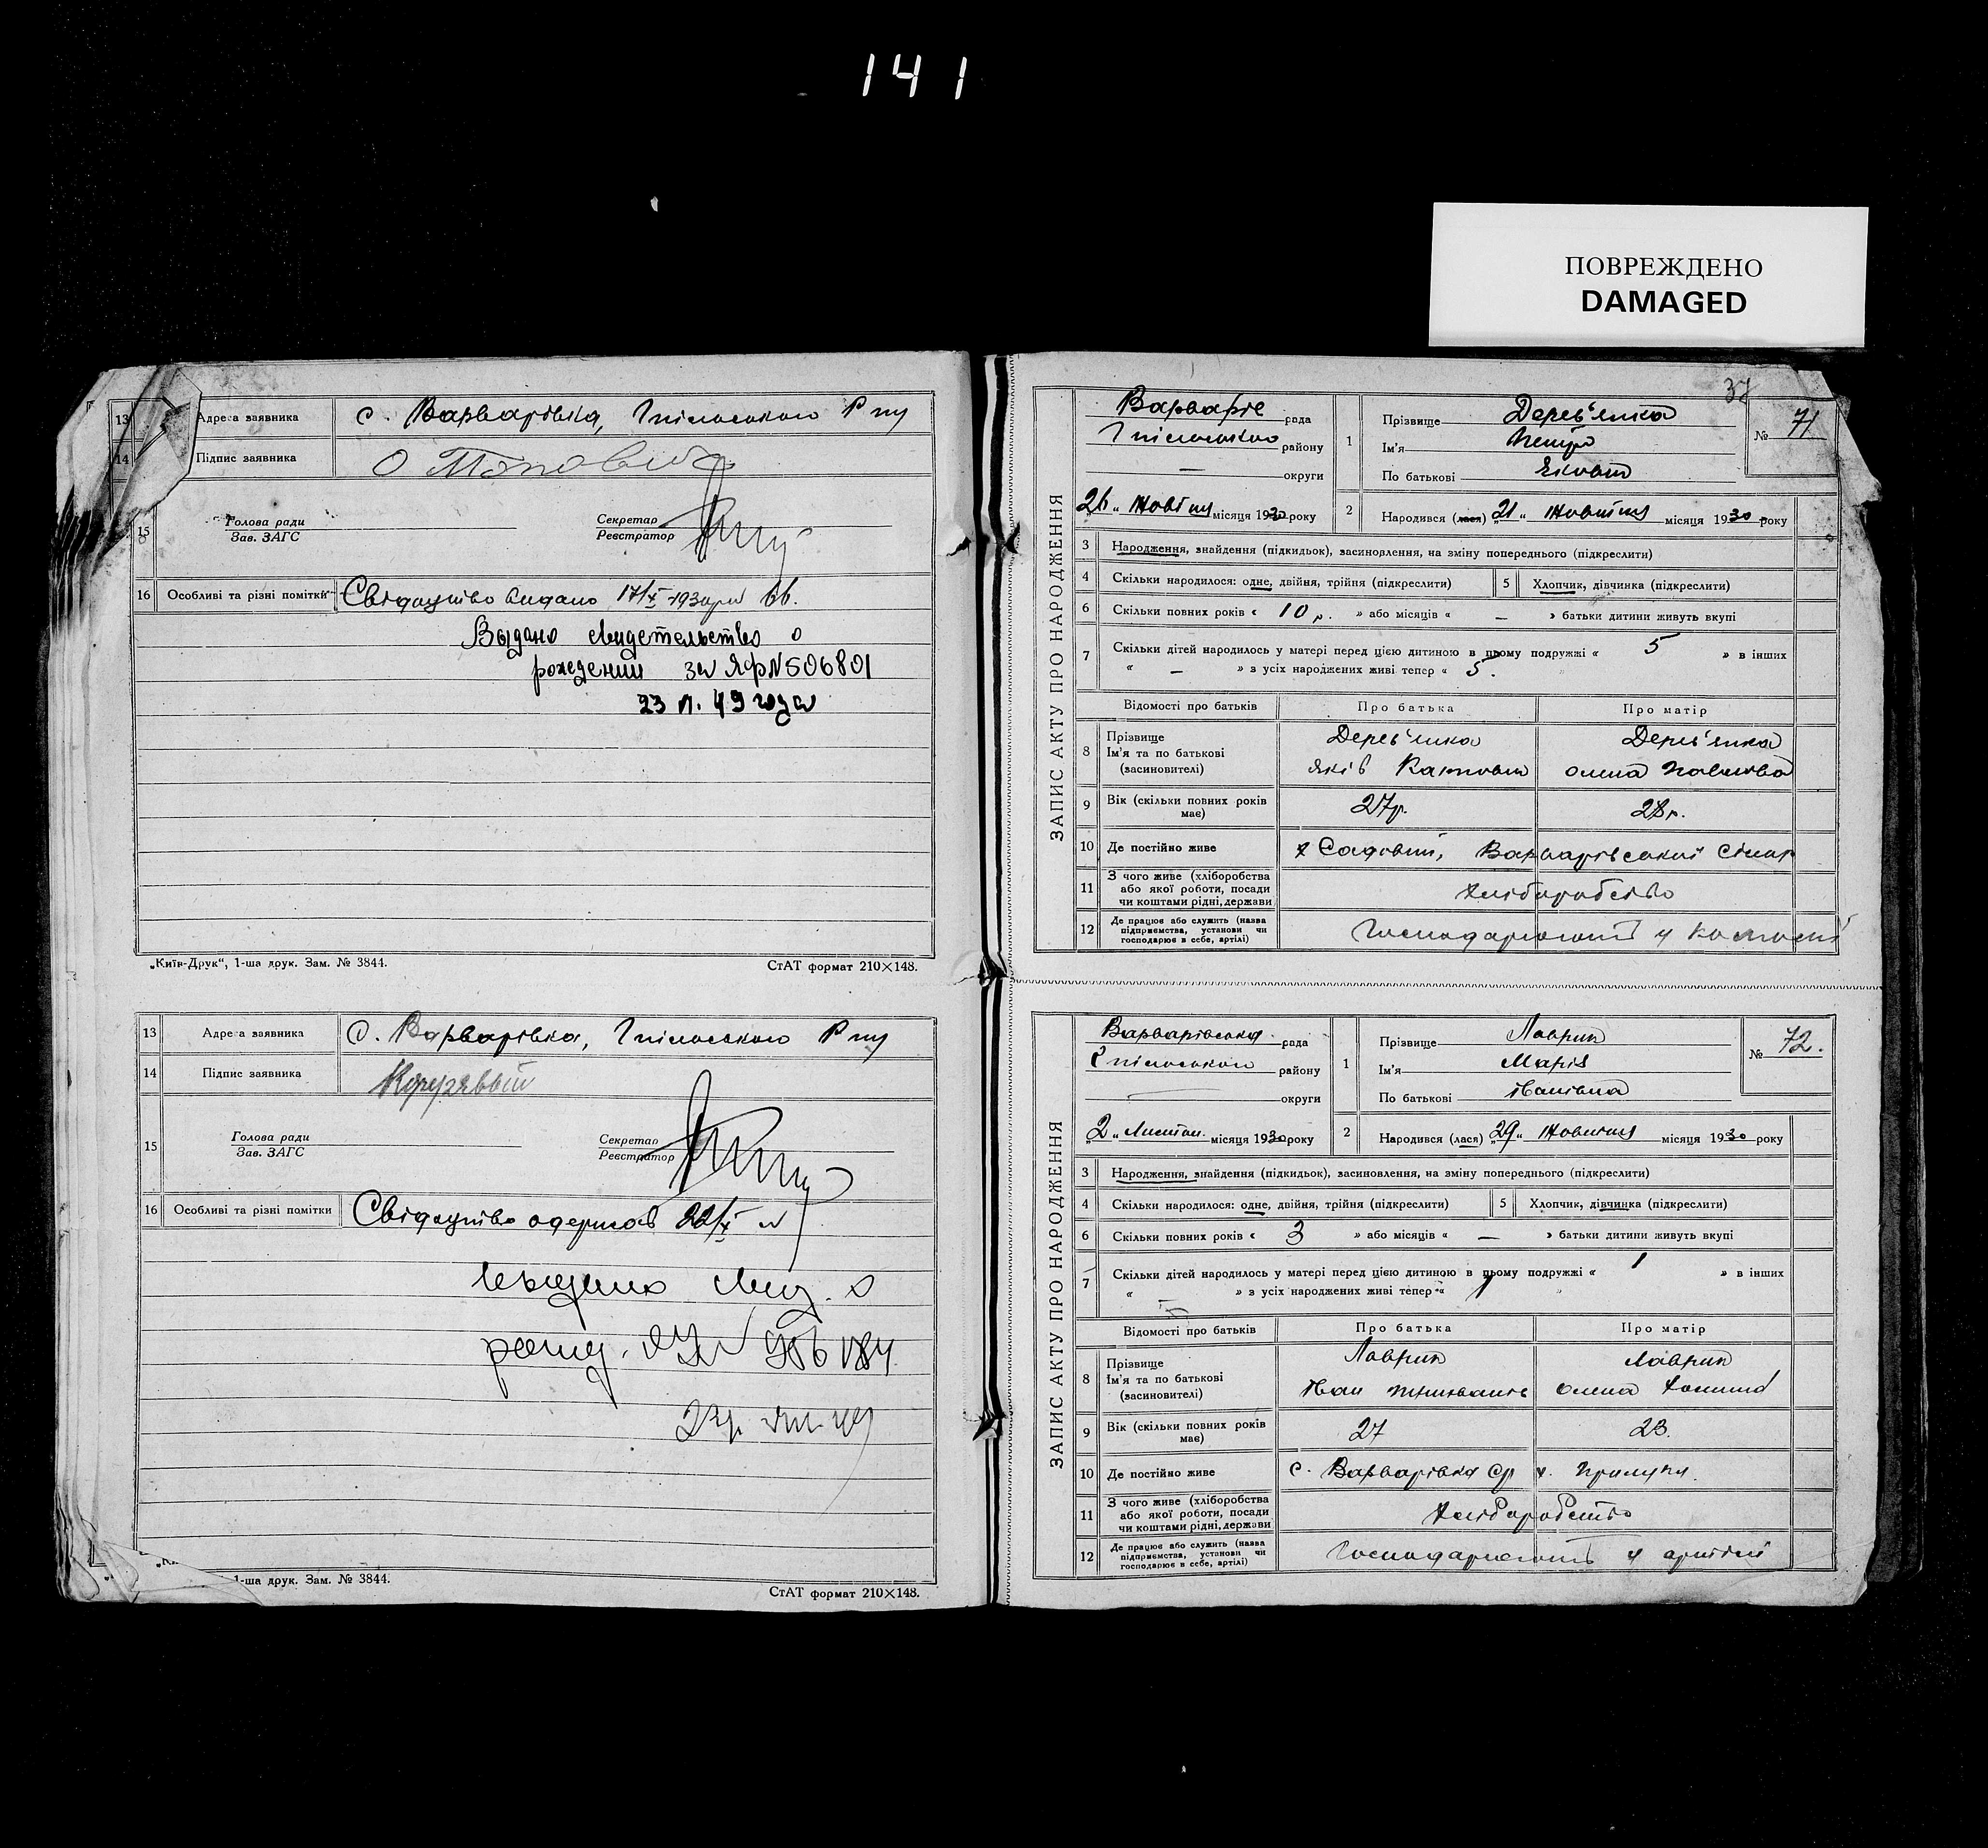 141
ПОВРЕЖДЕНО
DAMAGED
13 Адреса заявника с. Варварівка,
14 Підпис заявника
15 Голова ради
Зав. ЗАГС
Секретар
Реєстратор
16 Особливі та різні помітки Свідоцтво видано 17/X 1930
Выдано свидетельство о
рождении за ЯФ№506801
23 49 года
„Київ-Друк“, 1-ша друк. Зам. № 3844.
СтАТ формат 210×148.
13 Адреса заявника с. Варварівка,
14 Підпис заявника
15 Голова ради
Зав. ЗАГС
Секретар
Реєстратор
16 Особливі та різні помітки Свідоцтво одержав
1-ша друк. Зам. № 3844.
СтАТ формат 210×148.
37
ЗАПИС АКТУ ПРО НАРОДЖЕННЯ
Варварів рада
району
— округи
місяця 1930 року
1 Прізвище Дерев'янка
Ім'я Петро
По батькові Яковит
№ 71
2 Народився (лася) „21“ Жовтня місяця 1930 року
3 Народження, знайдення (підкидьок), засиновлення, на зміну попереднього (підкреслити)
4 Скільки народилося: одне, двійня, трійня (підкреслити)
5 Хлопчик, дівчинка (підкреслити)
6 Скільки повних років « 10 р. » або місяців « — » батьки дитини живуть вкупі
7 Скільки дітей народилось у матері перед цією дитиною в цьому подружжі « 5 » в інших
« — » з усіх народжених живі тепер « 5.
Відомості про батьків Про батька Про матір
8 Прізвище
Ім'я та по батькові
(засиновителі)
Дерев'янка
Яків
Дерев'янка
Олена Павлова
9 Вік (скільки повних років має) 27р. 28р.
10 Де постійно живе х Садовий, Варварівської
11 З чого живе (хліборобства або якої роботи, посади чи коштами рідні, держави хліборобство
12 Де працює або служить (назва підприємства, установи чи господарює в себе, артілі) Господарюють у
ЗАПИС АКТУ ПРО НАРОДЖЕННЯ
Варварівська рада
району
округи
„2“ Листоп. місяця 1930 року
1 Прізвище Лаврик
Ім'я Марія
По батькові Іванівна
№ 72.
2 Народився (лася) „29“ Жовтня місяця 1930 року
3 Народження, знайдення (підкидьок), засиновлення, на зміну попереднього (підкреслити)
4 Скільки народилося: одне, двійня, трійня (підкреслити)
5 Хлопчик, дівчинка (підкреслити)
6 Скільки повних років « 3 » або місяців « — » батьки дитини живуть вкупі
7 Скільки дітей народилось у матері перед цією дитиною в цьому подружжі « 1 » в інших
« — » з усіх народжених живі тепер « 1
Відомості про батьків Про батька Про матір
8 Прізвище
Ім'я та по батькові
(засиновителі)
Лаврик
Іван
Лаврик
Олена
9 Вік (скільки повних років має) 27 23.
10 Де постійно живе с. Варварівка
11 З чого живе (хліборобства або якої роботи, посади чи коштами рідні, держави хліборобство
12 Де працює або служить (назва підприємства, установи чи господарює в себе, артілі) Господарюють у артілі